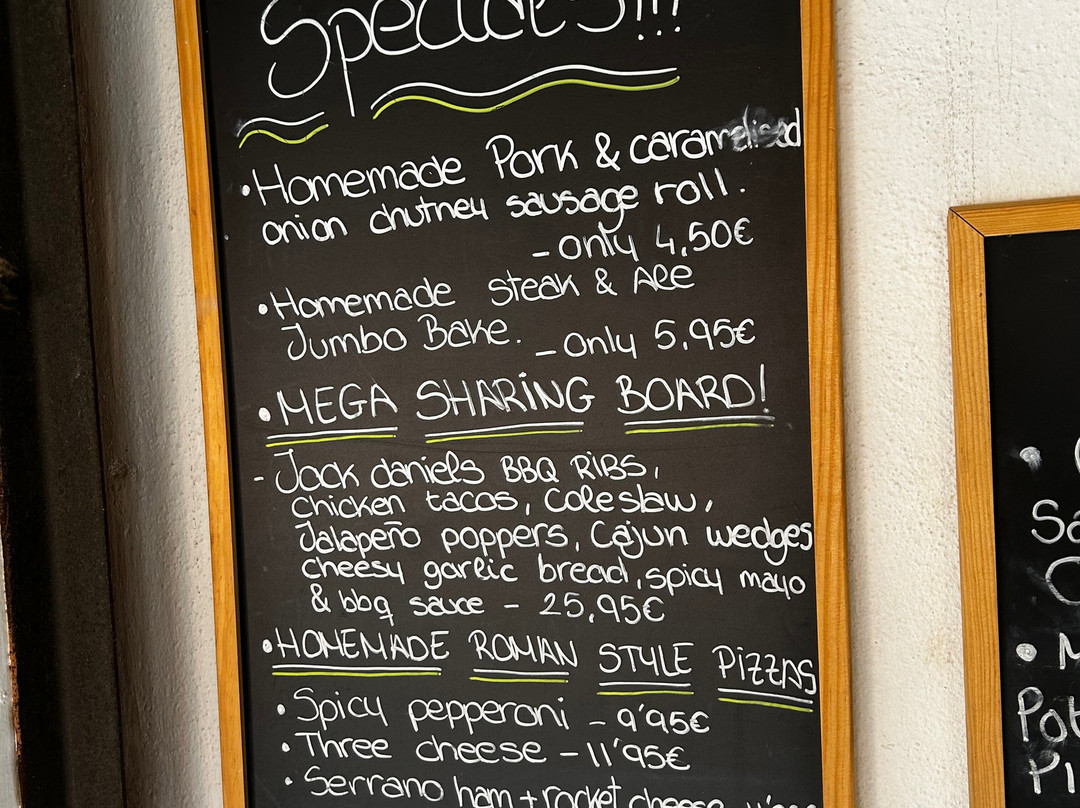 Specials!!!
•Homemade Pork & caramelised
onion chutney sausage roll.
- only 4,50€
•Homemade steak & Ale
Jumbo Bake. - only 5,95€
•MEGA SHARING BOARD!
- Jack daniels BBQ RIBS,
chicken tacos, coleslaw,
Jalapeño poppers, Cajun wedges
cheesy garlic bread, spicy mayo
& bbq sauce - 25,95€
•HOMEMADE ROMAN STYLE PIZZAS
•Spicy pepperoni - 9'95€
•Three cheese - 11'95€
•Serrano ham + rocket cheese